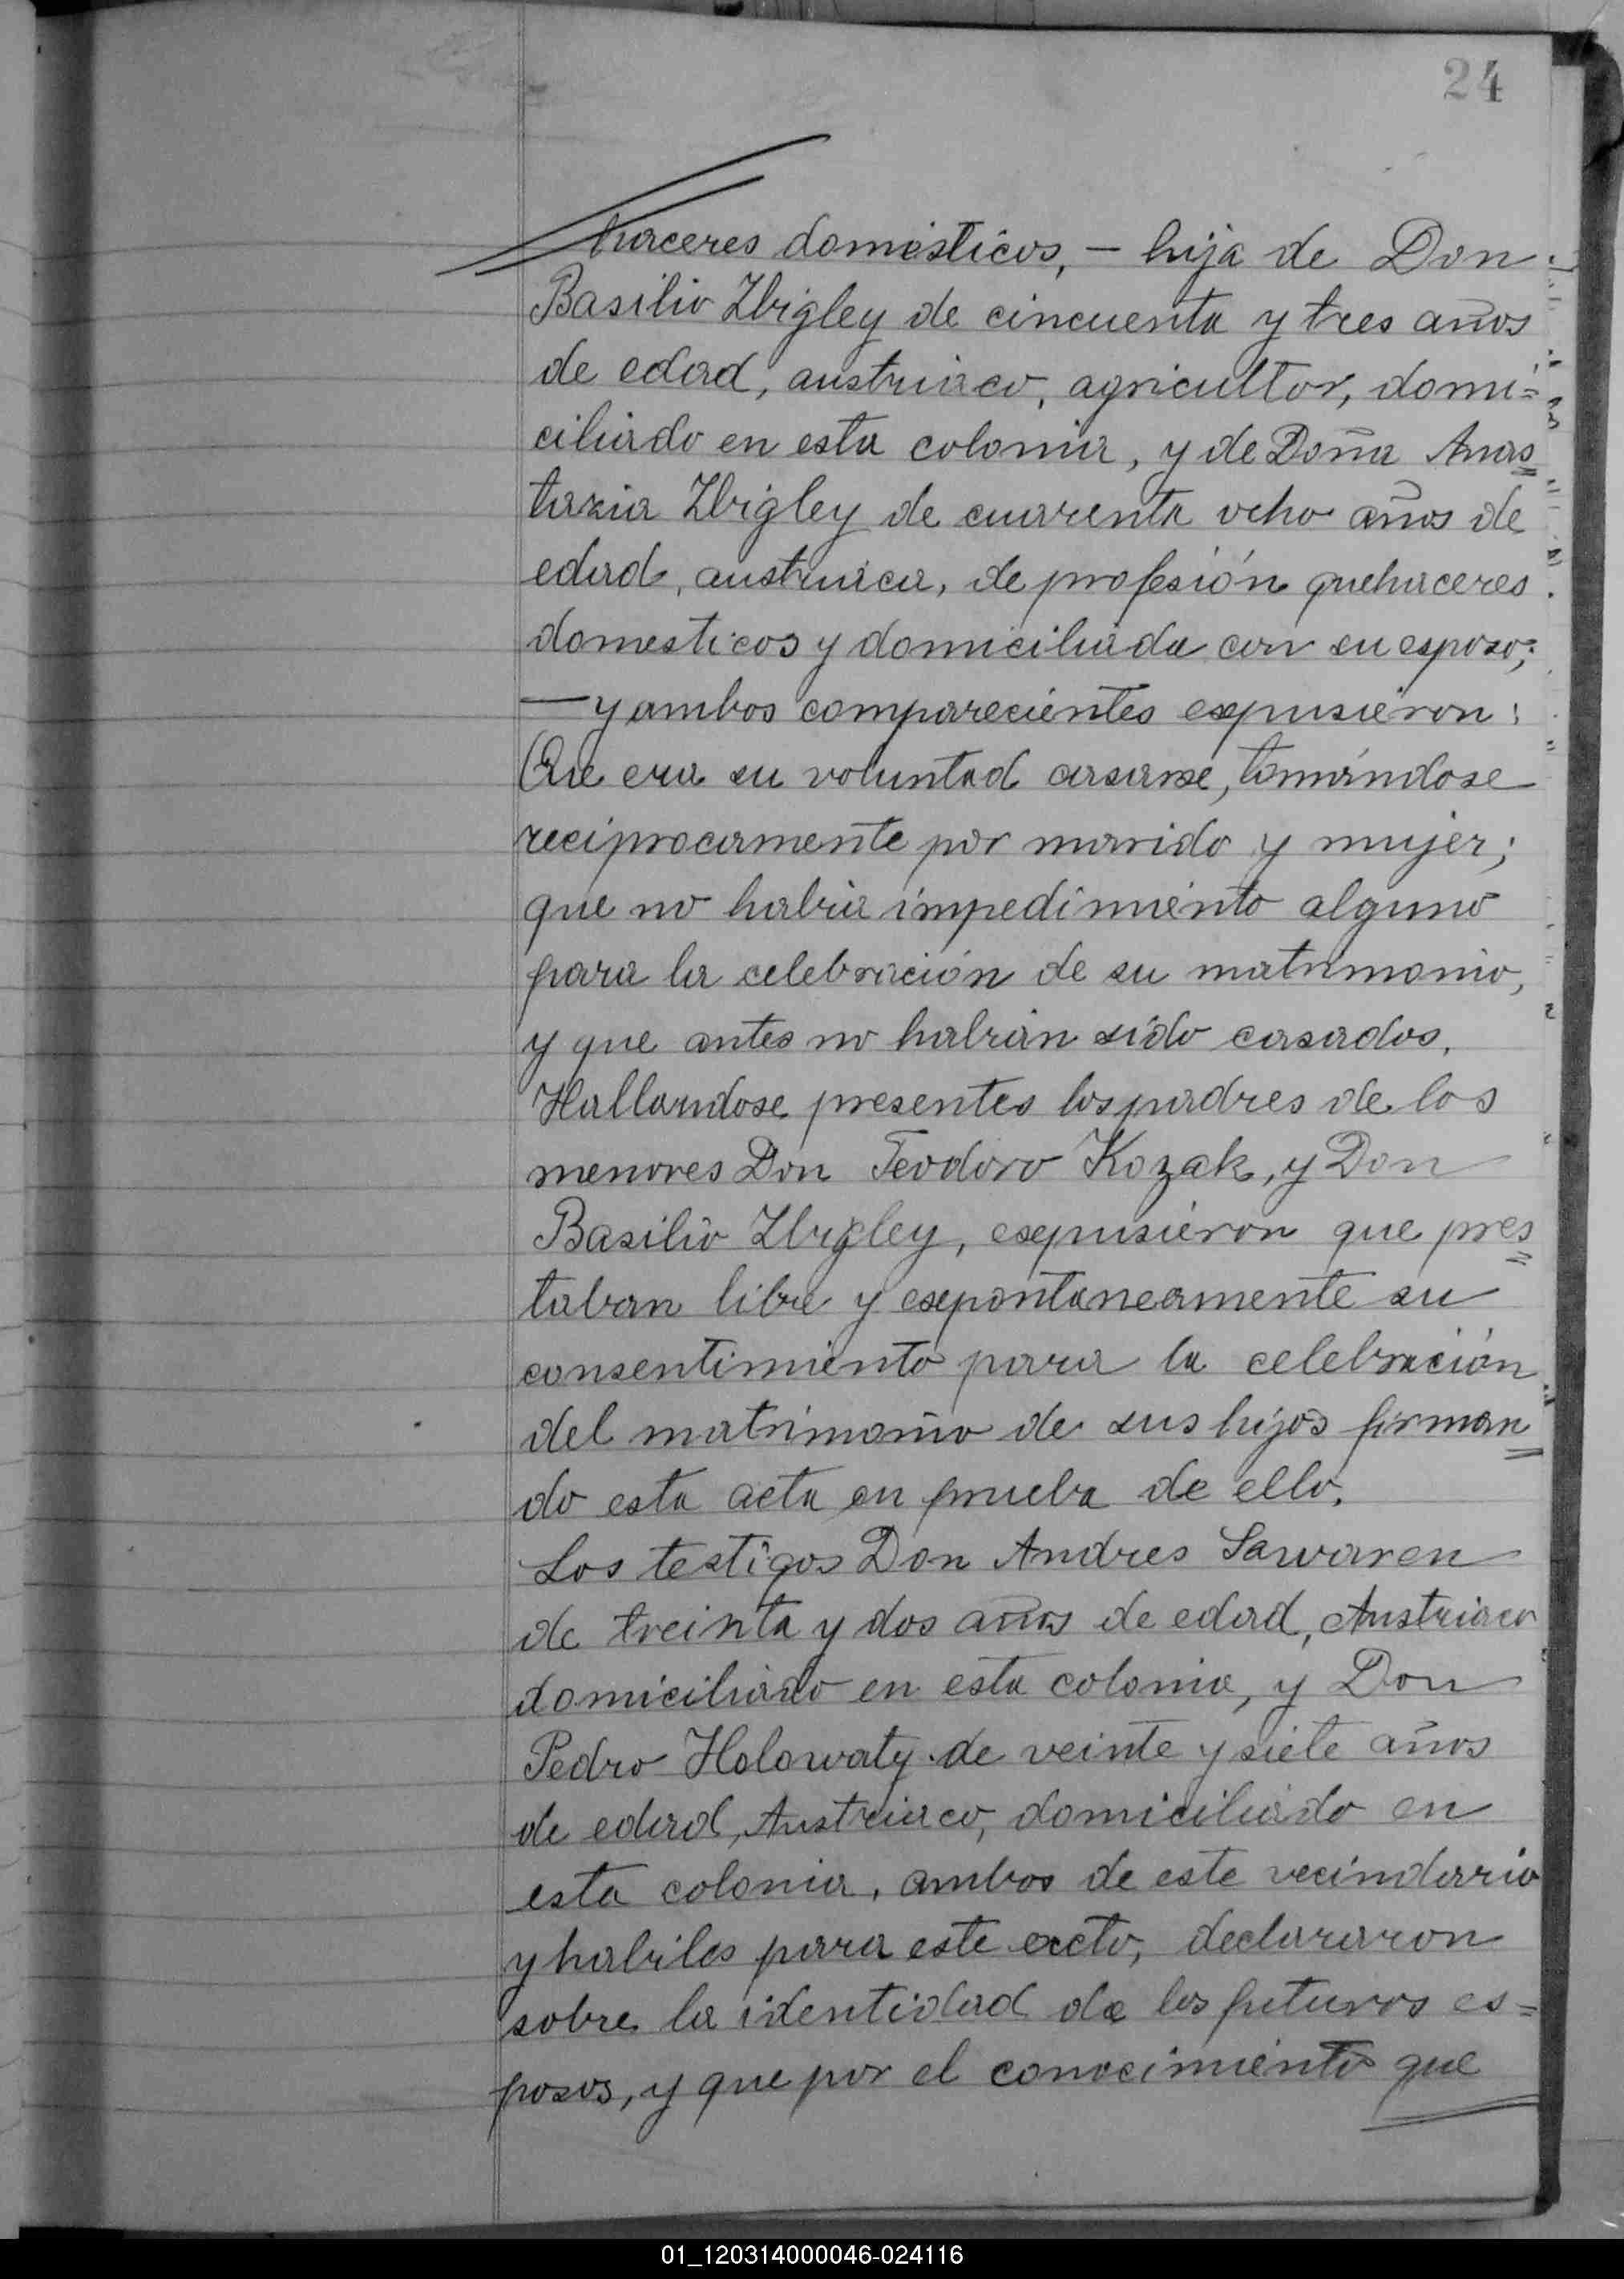 24
haceres domésticos, — hija de Don
Basilio Zbigley de cincuenta y tres años
de edad, austriaco, agricultor, domi=
ciliado en esta colonia, y de Doña Anas=
tazia Zbigley de cuarenta ocho años de
edad, austriaca, de profesión quehaceres
domesticos y domiciliada con su esposo;
— y ambos comparecientes expusieron:
Que era su voluntad casarse, tomándose
reciprocamente por marido y mujer;
que no habia impedimiento alguno
para la celebración de su matrimonio,
y que antes no habian sido casados.
Hallandose presentes los padres de los
menores Don Teodoro Kozak, y Don
Basilio Zbigley, expusieron que pres=
taban libre y expontaneamente su
consentimiento para la celebración
del matrimonio de sus hijos firman=
do esta acta en prueba de ello.
Los testigos Don Andres Sawaren
de treinta y dos años de edad, Austriaco
domiciliado en esta colonia, y Don
Pedro Holowaty de veinte y siete años
de edad, Austriaco, domiciliado en
esta colonia, ambos de este vecindario
y habiles para este acto, declararon
sobre la identidad de los futuros es=
posos, y que por el conocimiento que
01_120314000046-024116